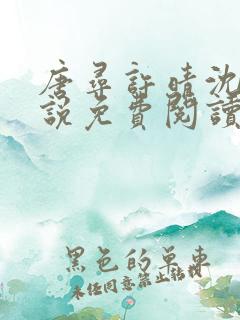 唐尋許晴沈
說免費閱讀
黑色的单車
未经同意禁止转载